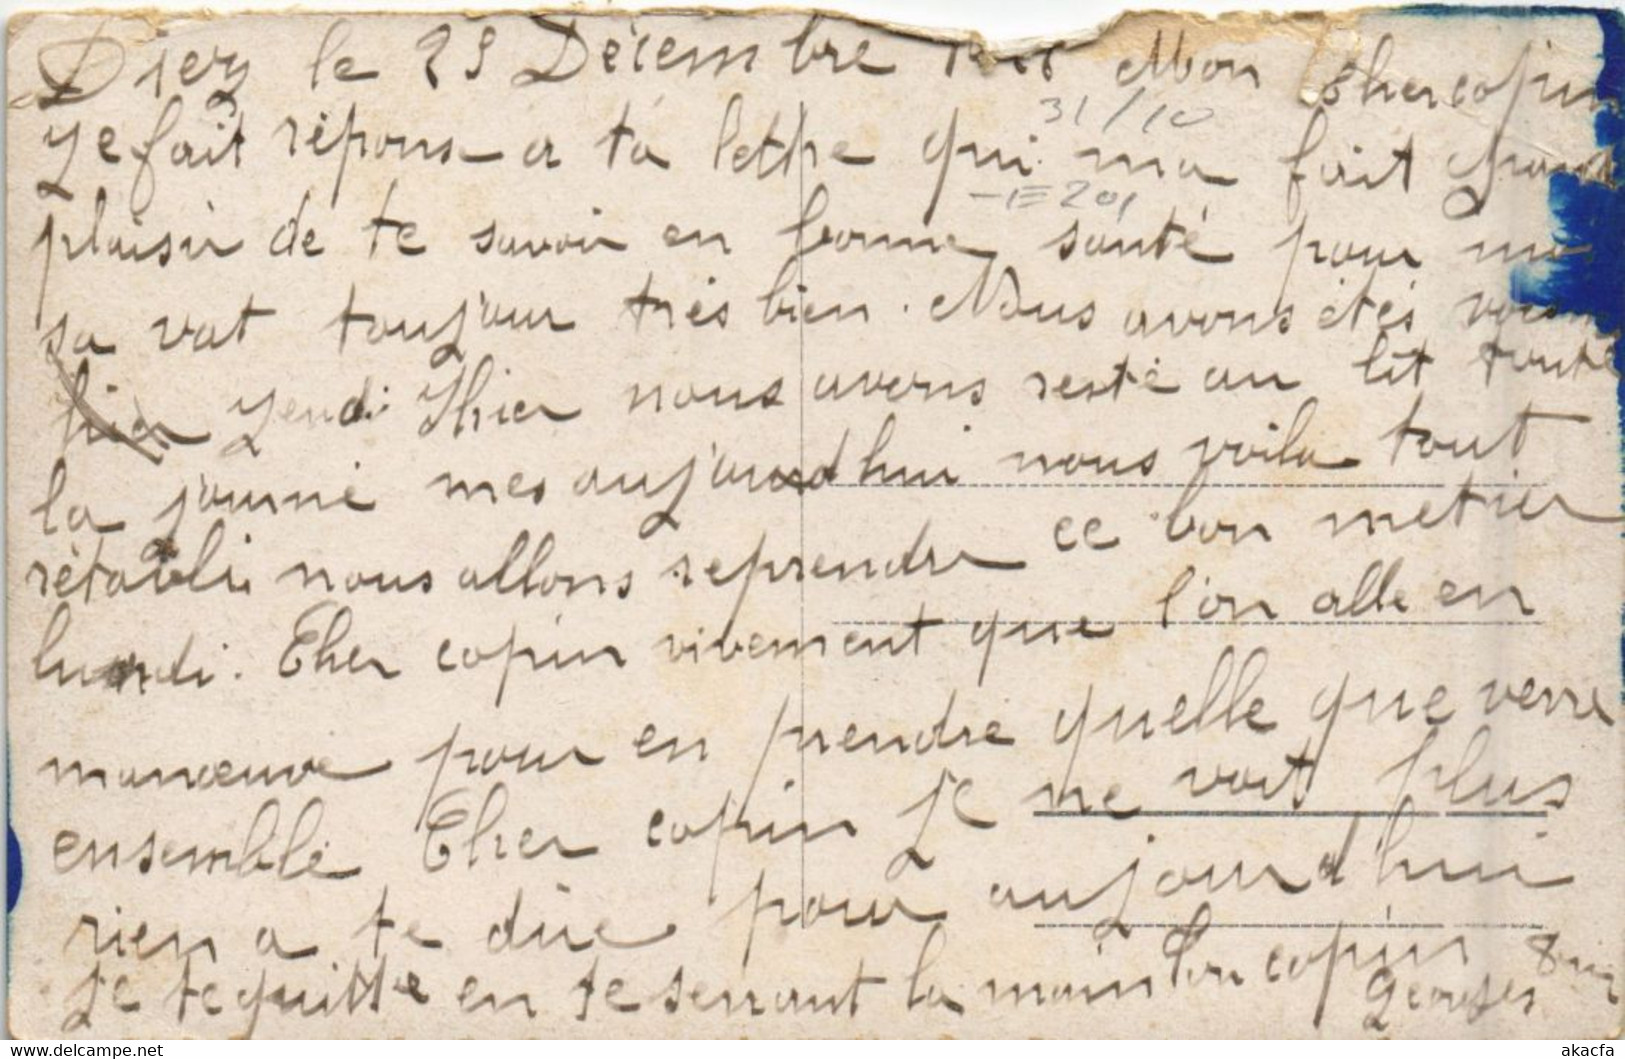 Diez le 23 Décembre Mon Cher copin
31/10
Je fait répons a ta lethre qui ma fait grand
-1E 201
plaisir de te savoir en bonne santé pour moi
sa vat toujour très bien. Nous avons étés
hier Jeudi Thier nous avons resté au lit toute
la journé mes aujourd hui nous voila tout
rétabli nous allons reprendre ce bon metier
lundi. Cher copin vivement que l'on alle en
manœuvre pour en prendre quelle que verre
ensemble Cher copin je ne voit plus
rien a te dire pour aujourd'hui
je te quitte en te serrant la main ton copin
Georges
akacfa
www.delcampe.net